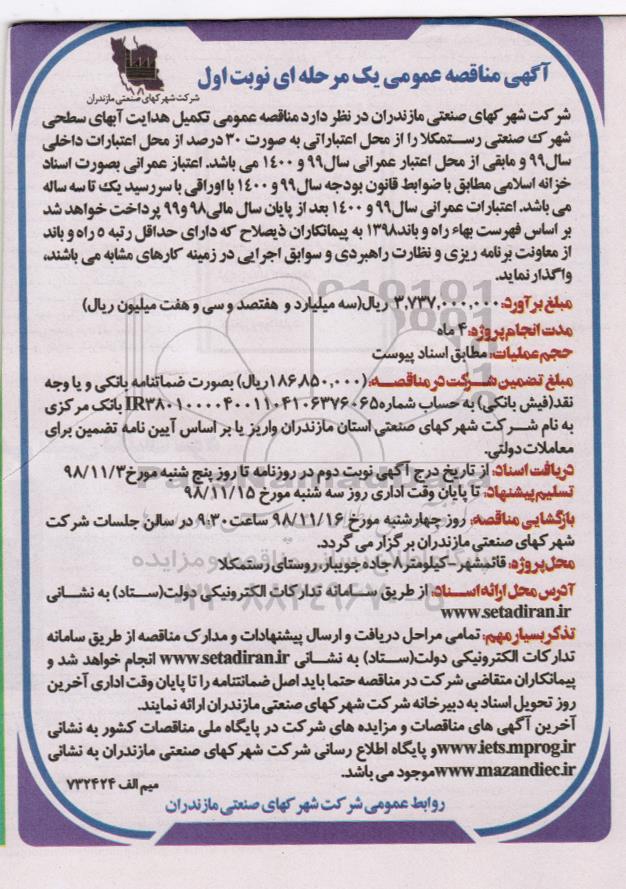 آگهی مناقصه عمومی یک مرحله ای نوبت اول
شرکت شهرکهای صنعتی مازندران
شرکت شهرکهای صنعتی مازندران در نظر دارد مناقصه عمومی تکمیل هدایت آبهای سطحی
شهرک صنعتی رستمکلا را از محل اعتباراتی به صورت ۳۰ درصد از محل اعتبارات داخلی
سال ۹۹ و مابقی از محل اعتبار عمرانی سال ۹۹ و ۱۴۰۰ می باشد. اعتباز عمرانی بصورت اسناد
خزانه اسلامی مطابق با ضوابط قانون بودجه سال ۹۹ و ۱۴۰۰ با اوراقی با سررسید یک تا سه ساله
می باشد. اعتبارات عمرانی سال ۹۹ و ۱۴۰۰ بعد از پایان سال مالی ۹۸ و ۹۹ پرداخت خواهد شد
بر اساس فهرست بهاء راه و باند ۱۳۹۸ به پیمانکاران ذیصلاح که دارای حداقل رتبه ۵ راه و باند
از معاونت برنامه ریزی و نظارت راهبردی و سوابق اجرایی در زمینه کارهای مشابه می باشند،
واگذار نماید.
مبلغ برآورد: ۳,۷۳۷,۰۰۰,۰۰۰ ریال(سه میلیارد و هفتصد و سی و هفت میلیون ریال)
مدت انجام پروژه: ۴ ماه
حجم عملیات: مطابق اسناد پیوست
مبلغ تضمین شرکت در مناقصه: (۱۸۶،۸۵۰,۰۰۰ ریال) بصورت ضمانتنامه بانکی و یا وجه
نقد(فیش بانکی) به حساب شماره IR۳۸۰۱۰۰۰۰۴۰۰۱۱۰۴۱۰۶۳۷۶۰۶۵ بانک مرکزی
به نام شرکت شهرکهای صنعتی استان مازندران واریز یا بر اساس آیین نامه تضمین برای
معاملات دولتی.
دریافت اسناد: از تاریخ درج آگهی نوبت دوم در روزنامه تا روز پنج شنبه مورخ ۹۸/۱۱/۳
تسلیم پیشنهاد: تا پایان وقت اداری روز سه شنبه مورخ ۹۸/۱۱/۱۵
بازگشایی مناقصه: روز چهارشنبه مورخ ۹۸/۱۱/۱۶ ساعت ۹:۳۰ در سالن جلسات شرکت
شهرکهای صنعتی مازندران برگزار می گردد.
محل پروژه: قائمشهر- کیلومتر ۸ جاده جویبار، روستای رستمکلا
آدرس محل ارائه اسناد: از طریق سامانه تدارکات الکترونیکی دولت(ستاد) به نشانی
www.setadiran.ir
تذکر بسیار مهم: تمامی مراحل دریافت و ارسال پیشنهادات و مدارک مناقصه از طریق سامانه
تدارکات الکترونیکی دولت(ستاد) به نشانی www.setadiran.ir انجام خواهد شد و
پیمانکاران متقاضی شرکت در مناقصه حتما باید اصل ضمانتنامه را تا پایان وقت اداری آخرین
روز تحویل اسناد به دبیرخانه شرکت شهرکهای صنعتی مازندران ارائه نمایند.
آخرین آگهی های مناقصات و مزایده های شرکت در پایگاه ملی مناقصات کشور به نشانی
www.iets.mprog.ir و پایگاه اطلاع رسانی شرکت شهرکهای صنعتی مازندران به نشانی
www.mazandiec.ir موجود می باشد.
میم الف ۷۳۲۴۲۴
روابط عمومی شرکت شهرکهای صنعتی مازندران